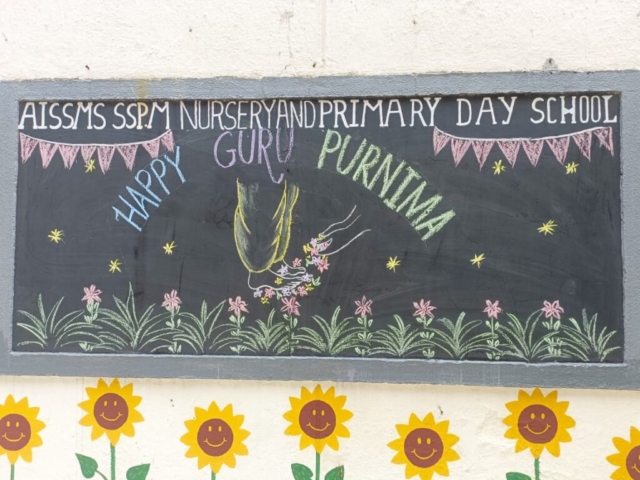 AISSMS SSP.M NURSERY AND PRIMARY DAY SCHOOL
HAPPY GURU PURNIMA